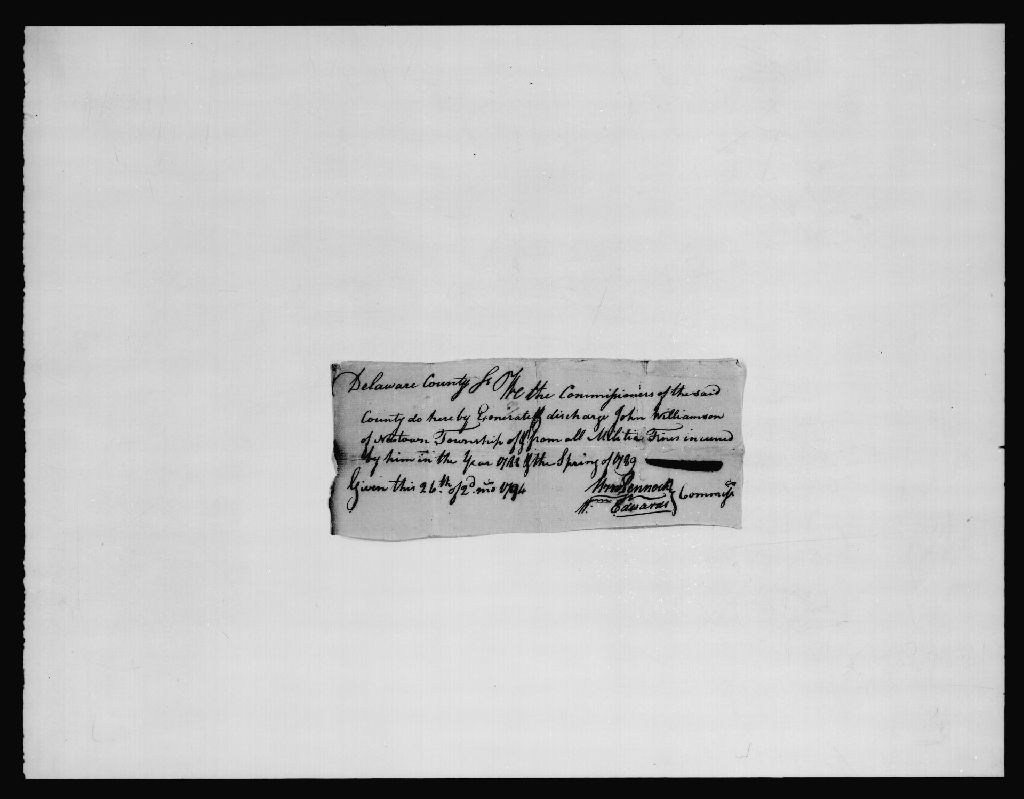 Delaware County Ss We the Commissioners of the said
County do hereby Exonerate & discharg John Williamson
of Newtown Township of & from all Militia Fines incurred
by him in the Year 1788 & the Spring of 1789
Given this 26th. of 2d. mo 1794
Wm Pennock
W. Edwards } Commissrs